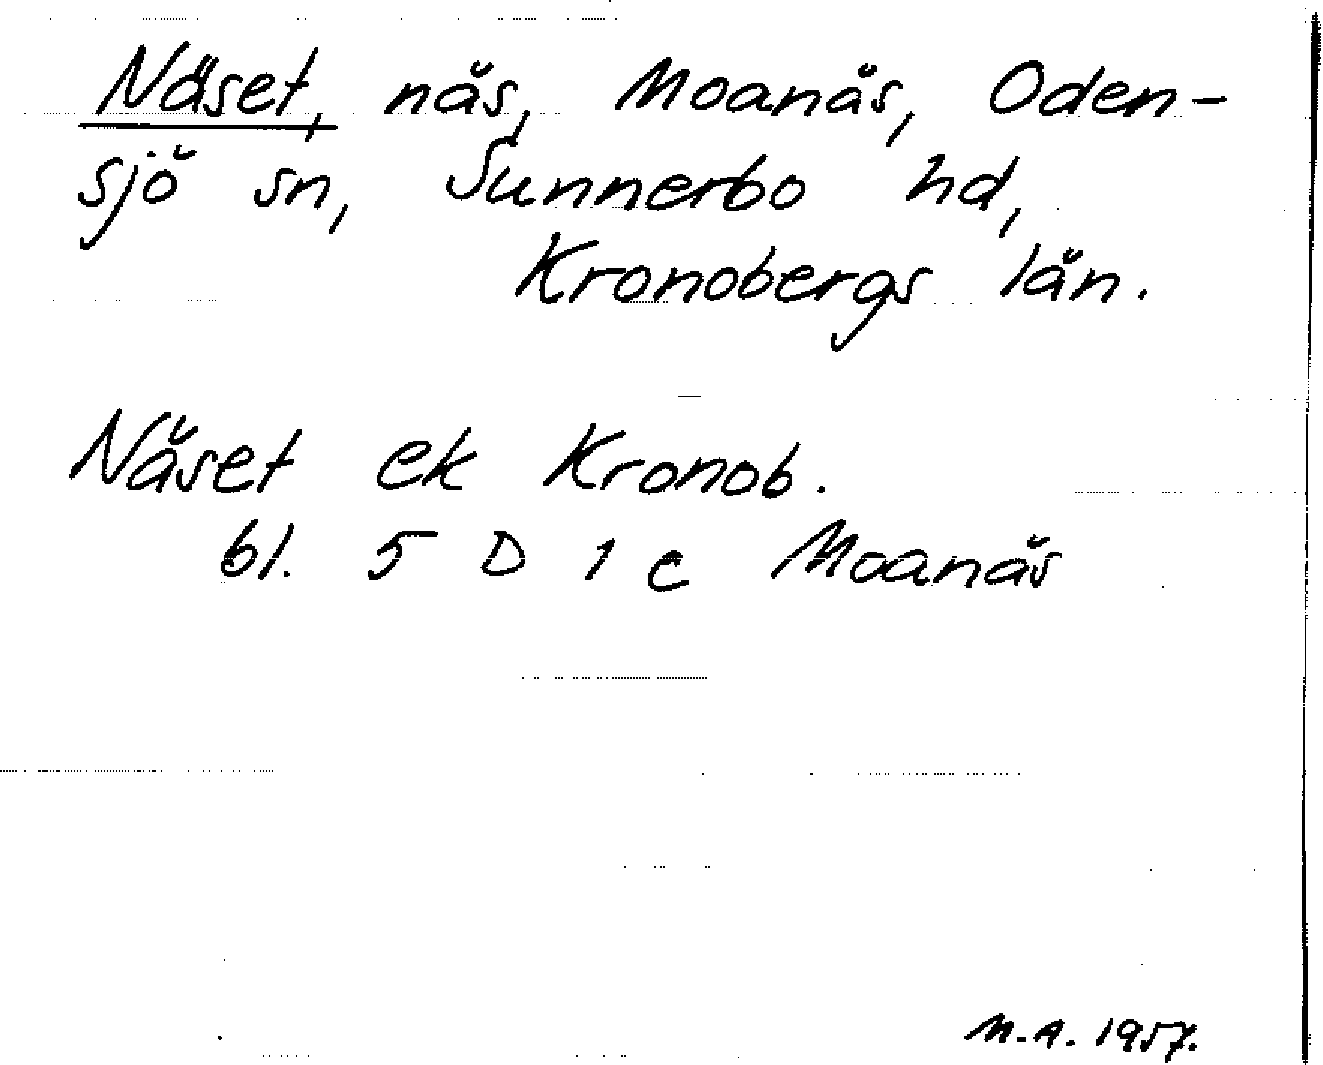 Näset, näs, Moanäs, Oden-
sjö sn, Sunnerbo hd,
Kronobergs län.
Näset ek Kronob.
bl. 5 D 1 c Moanäs
M.A. 1957.